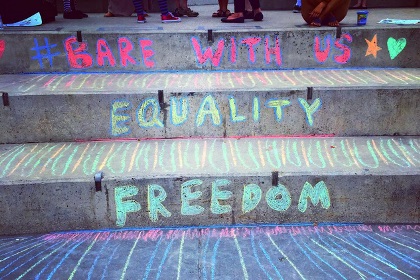 #BARE WITH US
EQUALITY
FREEDOM